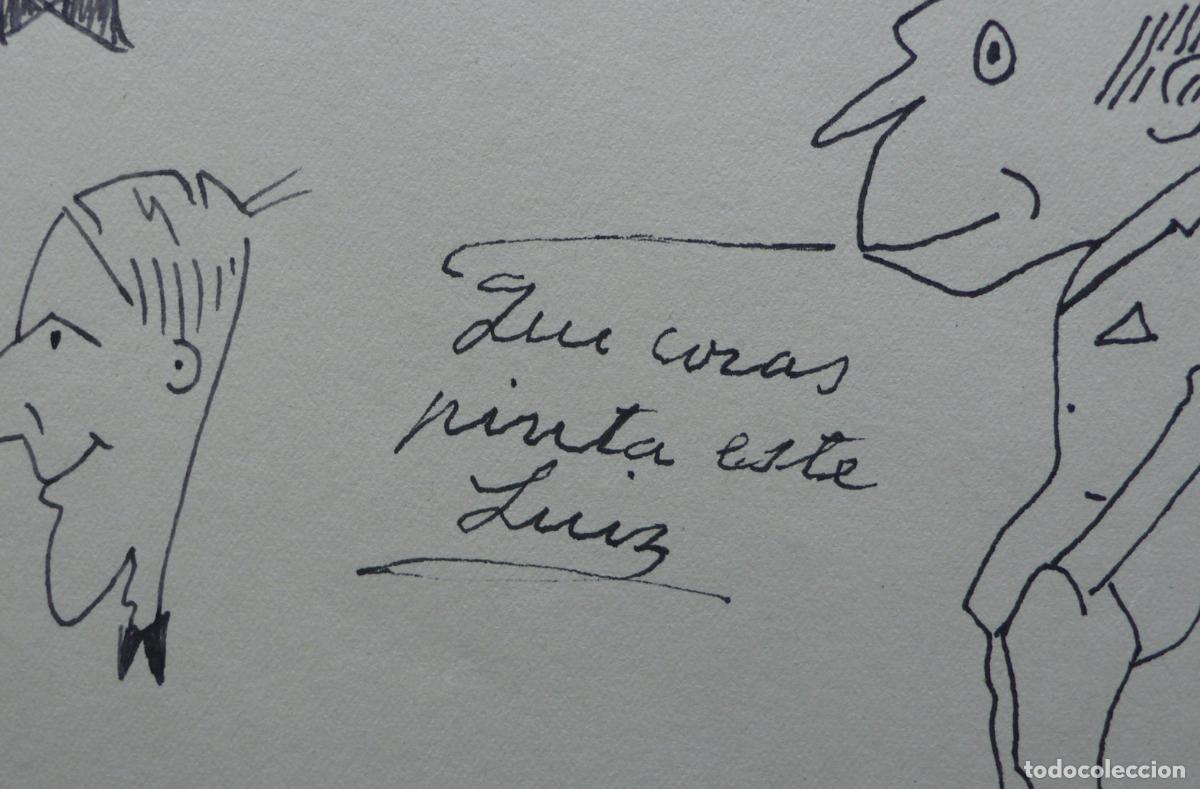 Que cosas
pinta este
Luiz
todocoleccion